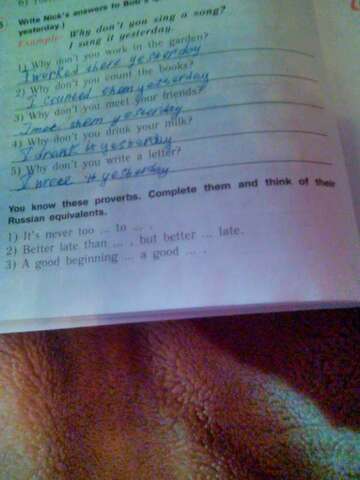 Write Nick's answers to Bob's
yesterday.)
Example: Why don't you sing a song?
I sang it yesterday.
1) Why don't you work in the garden?
I worked there yesterday
2) Why don't you count the books?
I counted them yesterday
3) Why don't you meet your friends?
I met them yesterday
4) Why don't you drink your milk?
I drank it yesterday
5) Why don't you write a letter?
I wrote it yesterday
You know these proverbs. Complete them and think of their
Russian equivalents.
1) It's never too ... to ... .
2) Better late than ... , but better ... late.
3) A good beginning ... a good ... .